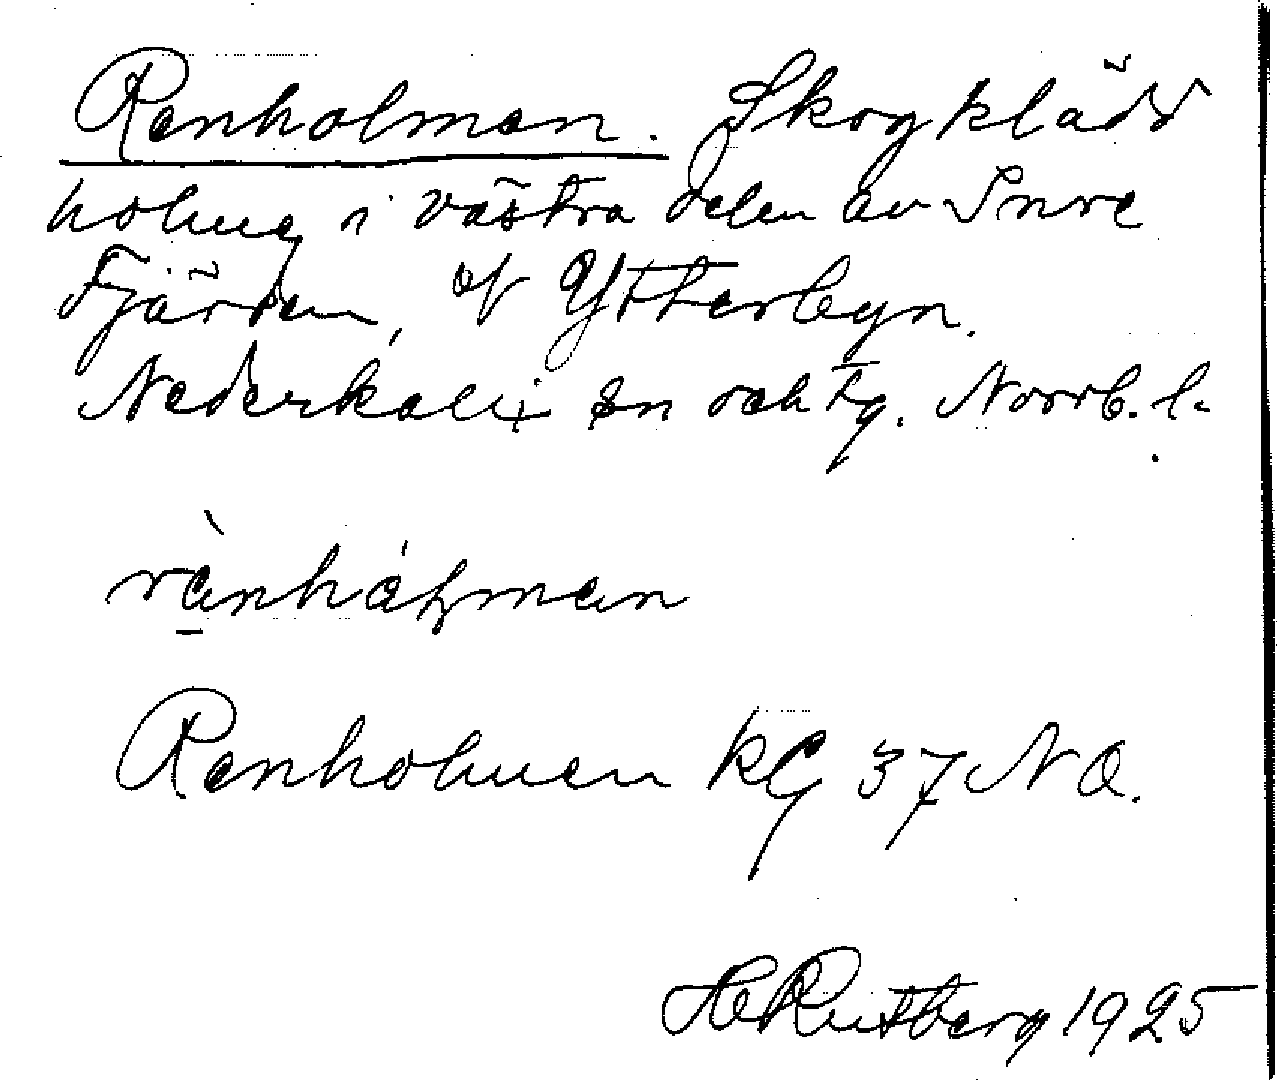 Renholmen. Skogklädd
holme i västra delen av Inre
Fjärden, of Ytterbyn.
Nederkalix sn och tg. Norrb. l.
Renholmen kG 37 NO.
H Rutberg 1925